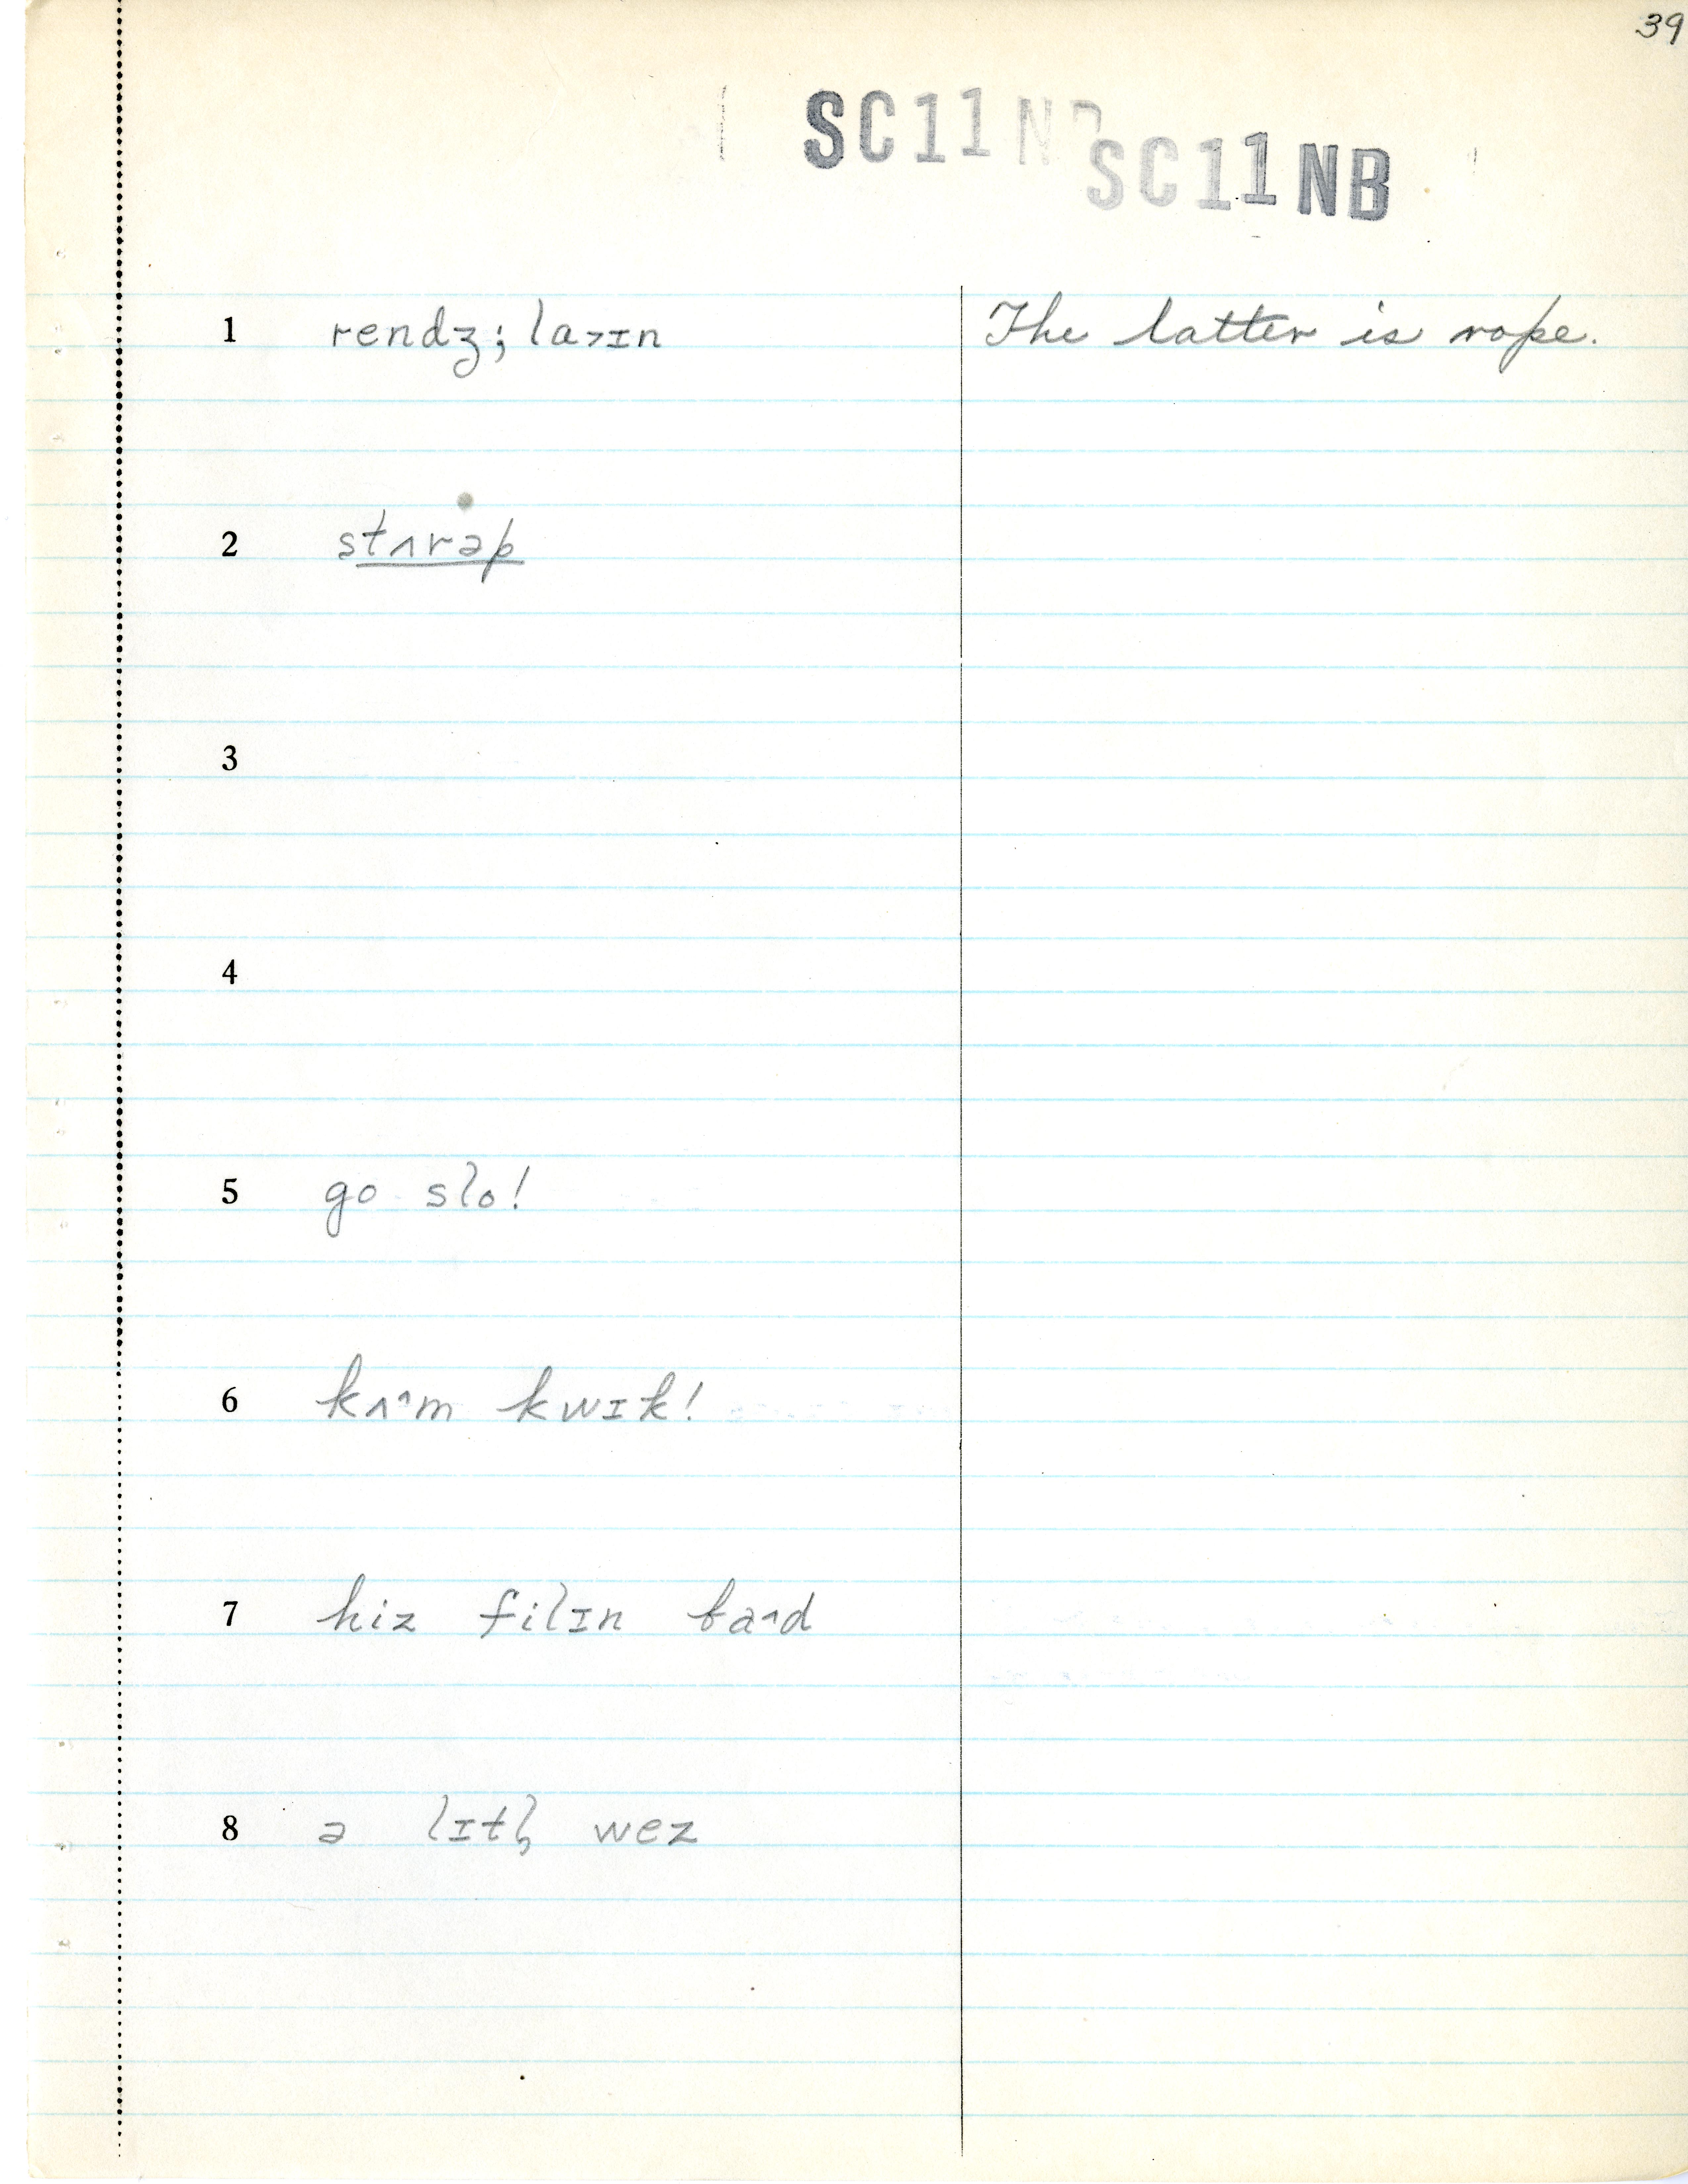 39
SC11N
SC11NB
1 rendʒ; la˃ɪn The latter is rope.
2 stʌrəp
3
4
5 go slo!
6 kʌ˄m kwɪk!
7 hiz filɪn ba˄d
8 ə lɪtl̩ wez